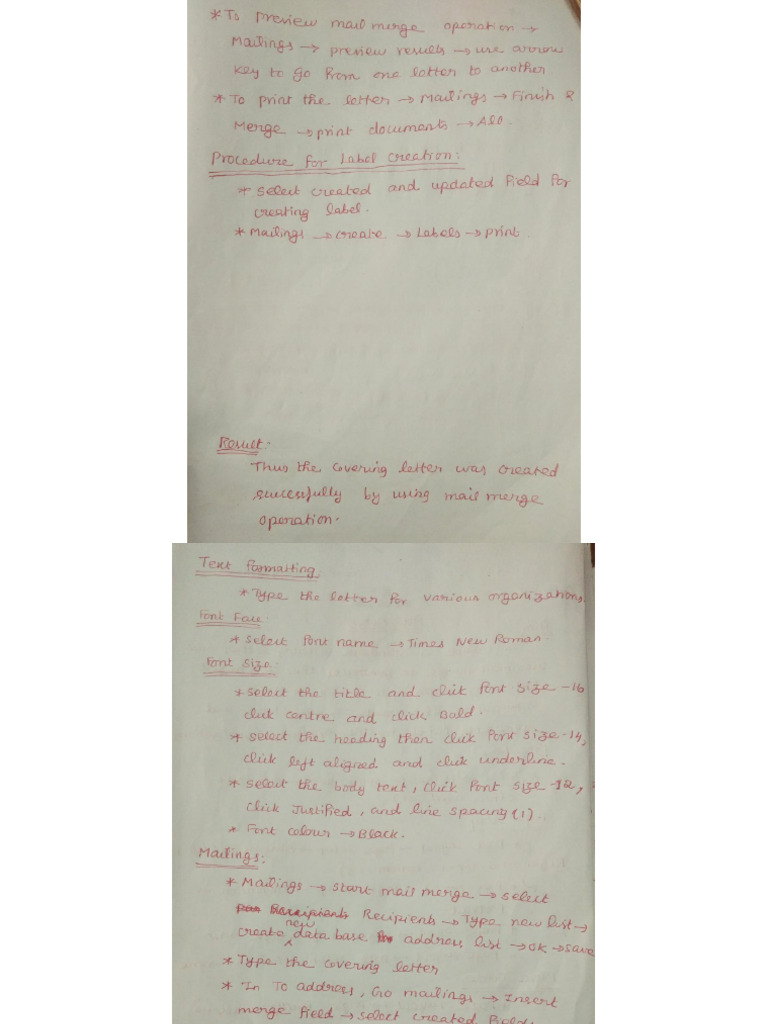 * To preview mail merge operation →
Mailings → preview results → use arrow
key to go from one letter to another.
* To print the letter → Mailings → Finish &
Merge → print documents → All.
Procedure for Label Creation:
* select created and updated field for
creating label.
* Mailings → create → Labels → print.
Result:
Thus the covering letter was created
successfully by using mail merge
operation.
Text formatting:
* Type the letter for various organizations.
Font Face:
* select font name → Times New Roman
Font Size:
* select the title and click font size -16
click centre and click Bold.
* select the heading then click font size -14,
click left aligned and click underline.
* select the body text, click font size -12,
click Justified, and line spacing (1).
* Font colour → Black.
Mailings:
* Mailings → start mail merge → select
Recipients → Type new list →
create new data base address list → OK → save
* Type the covering letter
* In To address, Go mailings → Insert
merge field → select created